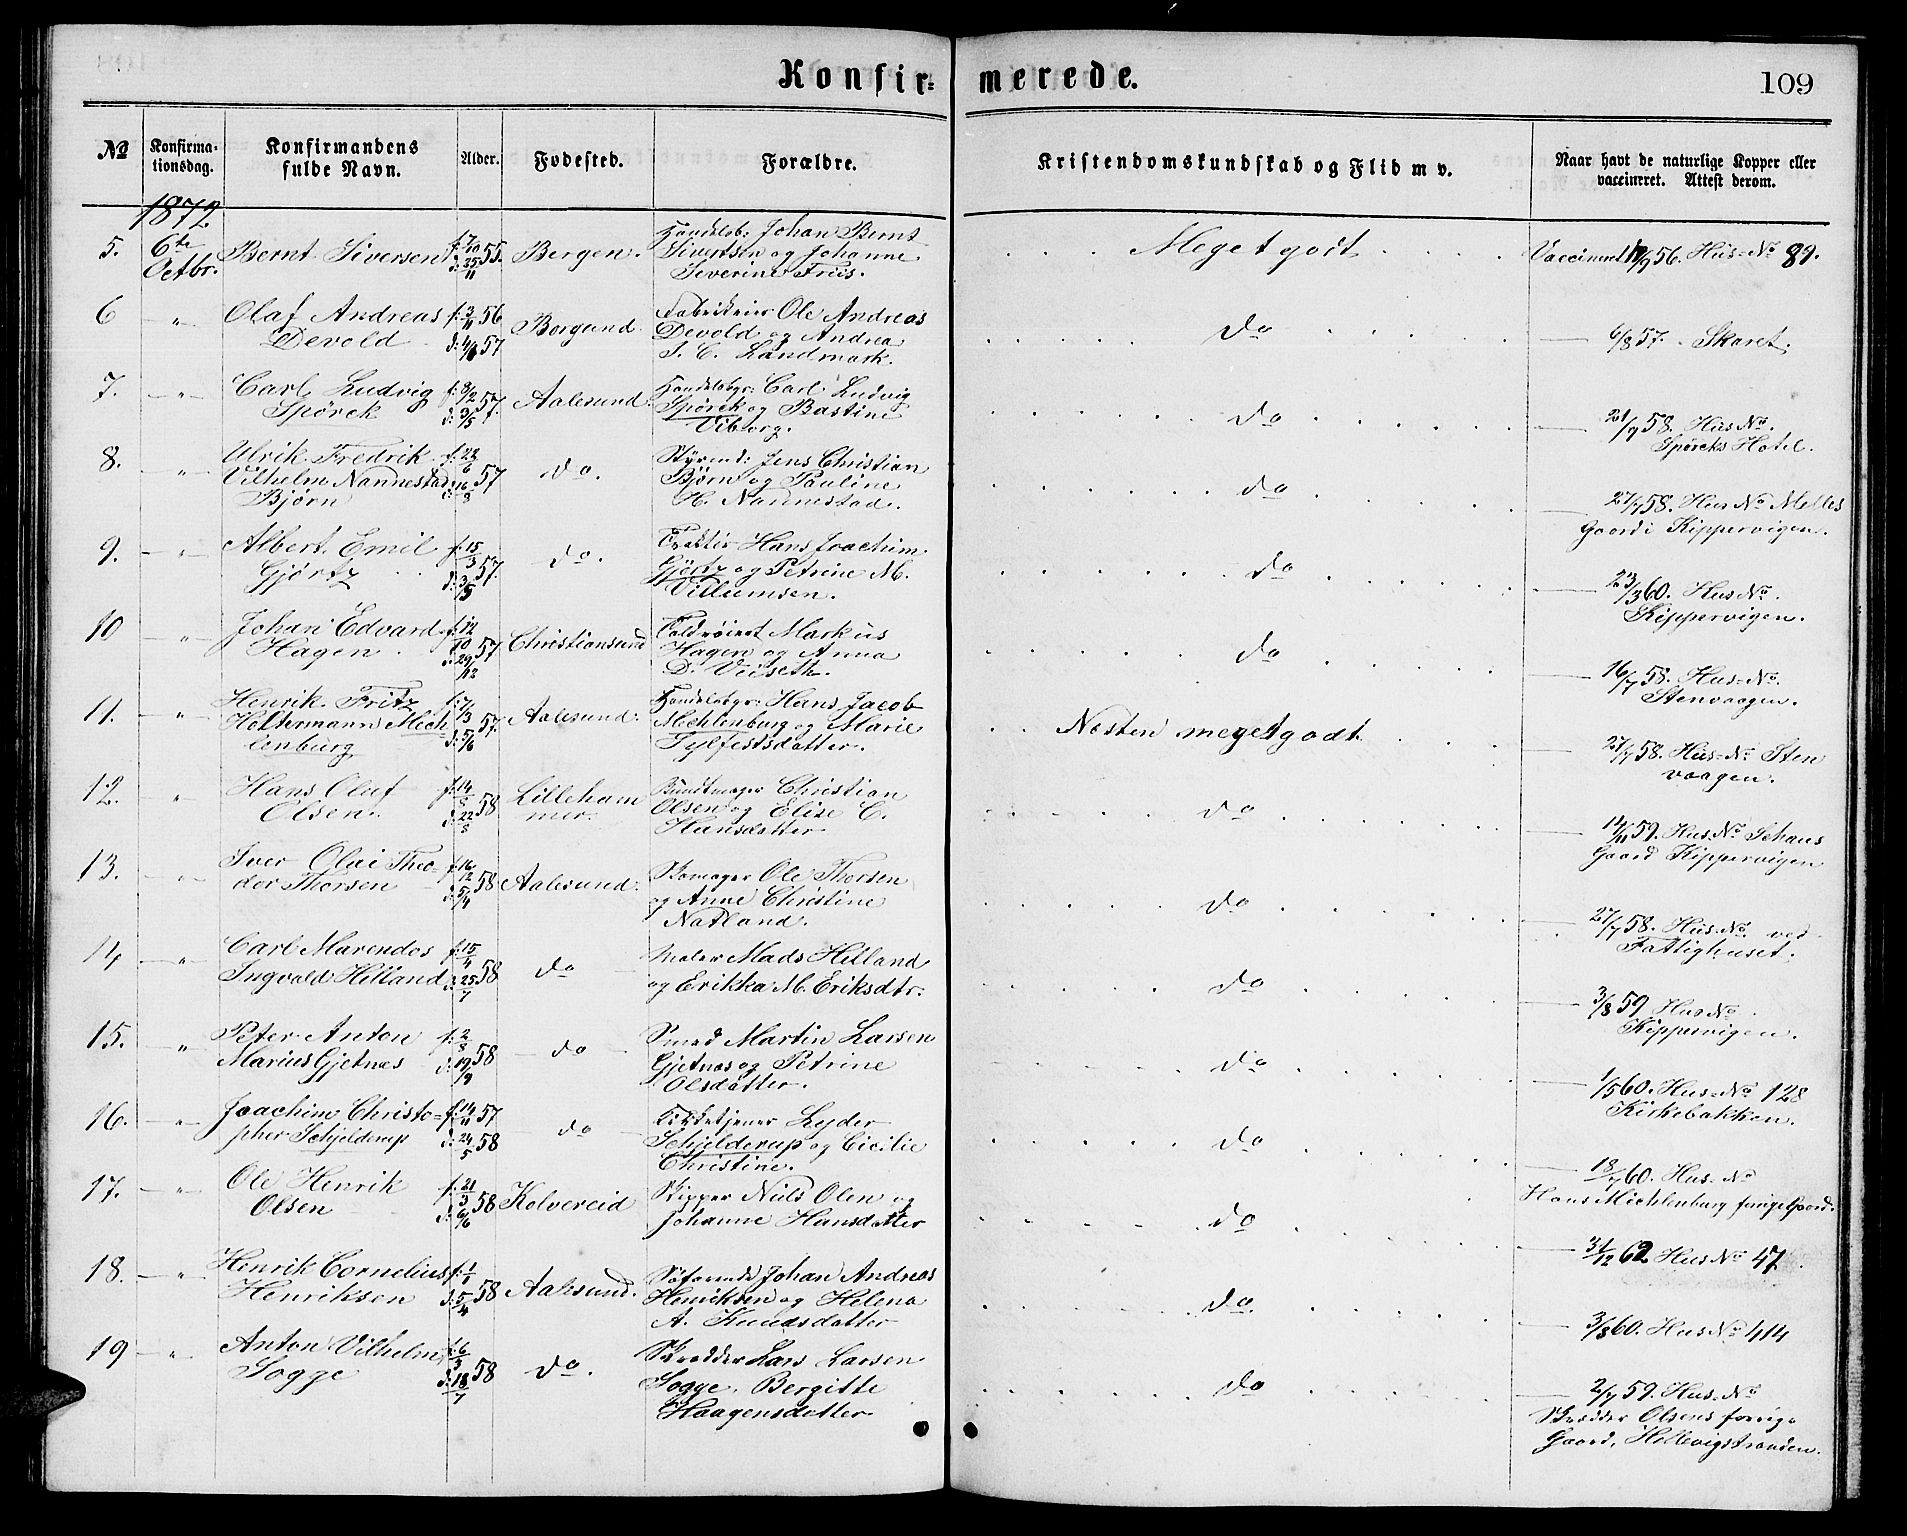 Konfir=
merede.
109
No
Konfirma-
tionsdag.
Konfirmandens
fulde Navn.
Alder.
Fødested.
Forældre.
Kristendomskundskab og Flid m v.
Naar havt de naturlige Kopper eller
vaccineret. Attest derom.
1872
5. 6te Octbr. Bernt Siversen f: 7/10 d: 25/11 55. Bergen. Handelsb: Johan Bernt
Sivertsen og Johanne
Severine Friis.
Meget godt
Vaccineret 17/9 56. Hus-No 89.
6 " Olaf Andreas
Devold f: 3/11 56 57 Borgund Fabrikeier Ole Andreas
Devold og Andrea
S. C. Landmark.
do
6/8 57. Skaret.
7. " Carl Ludvig
Spörck f: 8/2 d: 3/5 57. Aalesund Handelsbgr: Carl Ludvig
Spörck og Bastine
Viborg.
do
58. Hus No.
Spörcks Hotel.
8. " Ulrik Fredrik
Vilhelm Nannestad
Bjørn 57 do. Styrmd: Jens Christian
Bjørn og Pauline
H. Nannestad.
do
27/7 58. Hus No Melles
Gaard i Kippervigen.
9. " Albert Emil
Gjörtz f: 15/3 d: 3/5 57. do. Hans Joachim
Gjörtz og Petrine M.
Villumsen.
do
23/3 60. Hus No.
Kippervigen.
10 " Johan Edvard
Hagen f: 12/10 d: 29/12 57 Christiansund Toldrøiert Markus
Hagen og Anna
D. Veiseth.
do
16/7 58. Hus-No.
Stenvaagen.
11. " Henrik Fritz
Holtermann Mech=
lenburg 57. Aalesund. Handelsbgr: Hans Jacob
Mechlenburg og Marie
Sylfestsdatter.
Næsten megetgodt
27/7 58. Hus-No Sten
vaagen.
12. " Hans Oluf
Olsen. f: 14/5 d: 22/8 58 Lilleham
mer. Buntmager Christian
Olsen og Elise C.
Hansdatter
do
14/11 59. Hus No Schous
Gaard Kippervigen
13. " Iver Olai Theo
dor Thorsen f: 16/12 d: 5/4 58 Aalesund. Skomager Ole Thorsen
og Anne Christine
Natland.
do
27/7 58. Hus-No. ved
Fattighuset.
14 " Carl Marendos
Ingvald Hilland f: 15/4 d: 25/7 58 do Maler Mads Hilland
og Erikka M. Eriksdtr:
do
3/8 59 Hus No.
Kippervigen.
15. " Peter Anton
Marius Gjetnæs f: 2/8 d: 19/9 58 do Smed Martin Larsen
Gjetnæs og Petrine
Olsdatter.
do
1/5 60. Hus-No 128
Kirkebakken.
16. " Joachim Christo=
pher Schjelderup f: 14/11 57 d: 24/5 58 do Kirketjener Lyder
Schjelderup og Cicilie
Christine.
do
18/7 60. Hus-No
Hans Michlenburg forrige Gaard.
17. " Ole Henrik
Olsen f: 21/3 d: 6/6 58 Kolvereid Skipper Niels Olen og
Johanne Hansdatter
do
31/12 62 Hus No 47.
18. " Henrik Cornelius
Henriksen f: 1/1 d: 5/4 58 Aalesund. Søfarende Johan Andreas
Henriksen og Helena
A. Knudsdatter
do
3/8 60. Hus No 414
19 " Anton Vilhelm
Sogge f: 6/3 d: 18/7 58 do. Skrædder Lars Larsen
Sogge, Bergitte
Haagensdatter
do
2/7 59. Hus-No
Skrædder Olsens forrige
Gaard, Hellevigstranden.